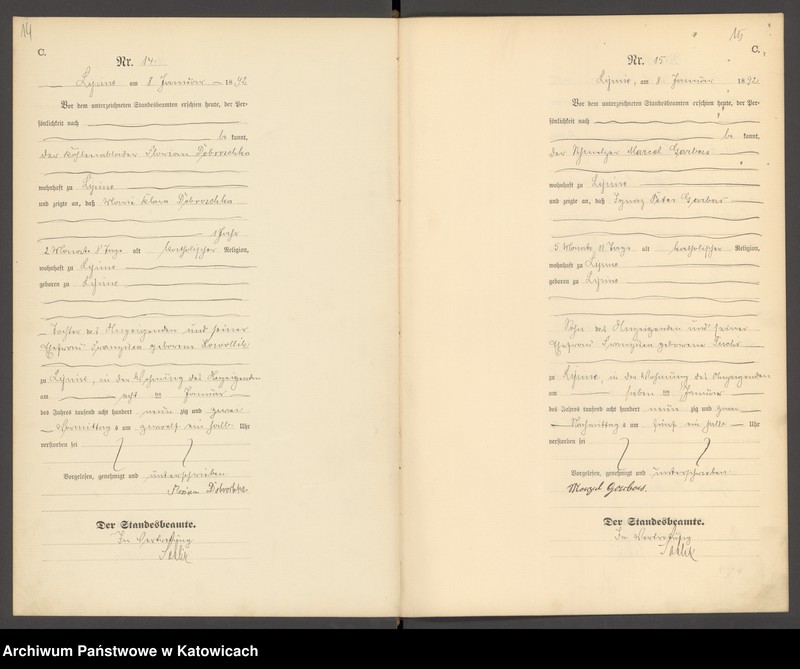 14
C.
Nr. 14.
am 8 Januar 1892
Vor dem unterzeichneten Standesbeamten erschien heute, der Per-
sönlichkeit nach
be kannt,
der Florian Dobroschka
wohnhaft zu
und zeigte an, daß Marie Klara Dobroschka
1 Jahr
2 Monate 8 Tage alt katholischer Religion,
wohnhaft zu
geboren zu
Tochter des Anzeigenden und seiner
Ehefrau geborene
zu in der Wohnung des Anzeigenden
am acht ten Januar
des Jahres tausend acht hundert neun zig und zwei
Vormittags um ein halb Uhr
verstorben sei
Vorgelesen, genehmigt und unterschrieben
Florian Dobroschka
Der Standesbeamte.
In Vertretung
15
C.
Nr. 15.
am 8 Januar 1892
Vor dem unterzeichneten Standesbeamten erschien heute, der Per-
sönlichkeit nach
be kannt,
der
wohnhaft zu
und zeigte an, daß Ignaz Peter
5 Monate 11 Tage alt katholischer Religion,
wohnhaft zu
geboren zu
Sohn des Anzeigenden und seiner
Ehefrau geborene
zu in der Wohnung des Anzeigenden
am sieben ten Januar
des Jahres tausend acht hundert neun zig und zwei
Nachmittags um fünf ein halb Uhr
verstorben sei
Vorgelesen, genehmigt und unterschrieben
Der Standesbeamte.
In Vertretung
Archiwum Państwowe w Katowicach